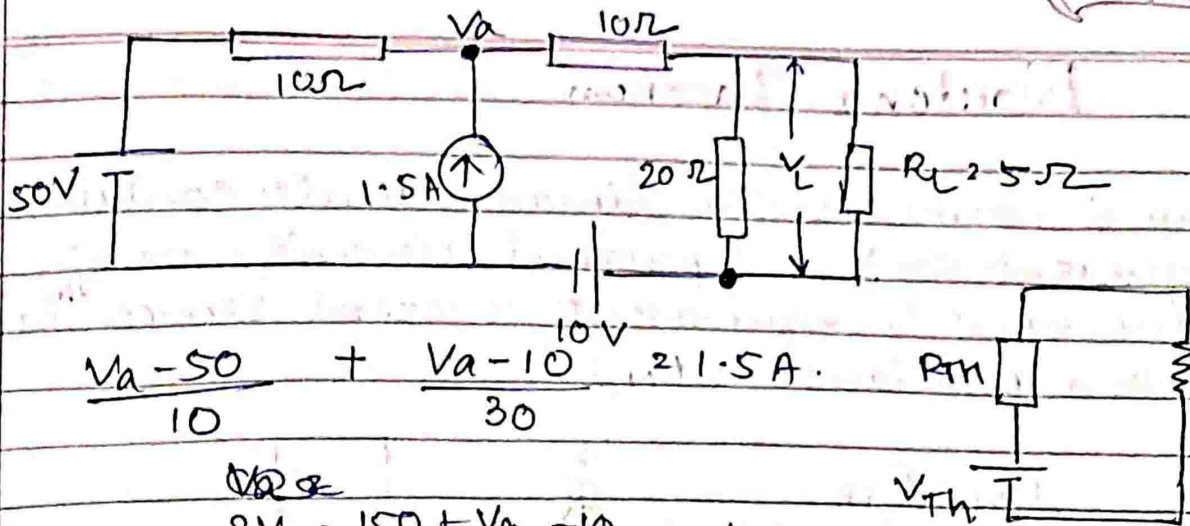 Va 10Ω
10Ω
50V 1.5A 20Ω V_L R_L = 5Ω
10V
Va - 50 / 10 + Va - 10 / 30 = 1.5A. R_TH
V_Th
3Va - 150 + Va - 10